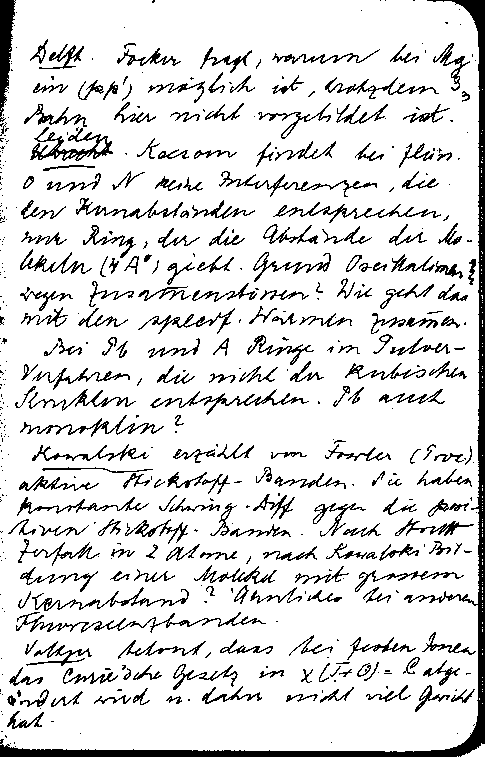 Delft. Focker fragt, warum bei Mg
ein (pp') möglich ist, trotzdem 3₃
Bahn hier nicht vorgebildet ist.
Leiden
Utrecht. Keesom findet bei flüss.
O und N keine Interferenzen, die
den Kernabständen entsprechen,
nur Ring, der die Abstände der Mo-
lekeln (4 A°) giebt. Grund Oscillationen
wegen Zusammenstössen? Wie geht das
mit den specif. Wärmen zusammen.
Bei Pb und A Ringe im Pulver-
Verfahren, die nicht der kubischen
Struktur entsprechen. Pb auch
monoklin?
Kowalski erzählt von Fowler (Proc)
aktive Stickstoff-Banden. Sie haben
konstante Schwing.-Diff gegen die posi-
tiven Stickstoff-Banden. Nach
Zerfall in 2 Atome, nach Kowalski Bil-
dung einer Molekel mit grossem
Kernabstand? Ähnliches bei anderen
Fluoreszenzbanden.
betont, dass bei festen Ionen
das Curie'sche Gesetz in χ(T+Θ)=C abge-
ändert wird u. daher nicht viel Gewicht
hat.